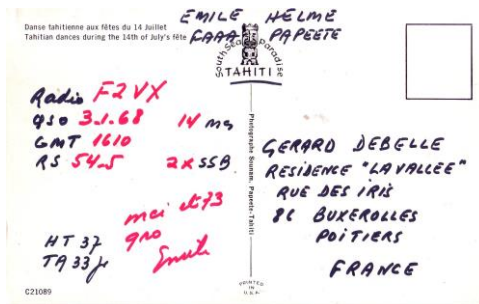 Danse tahitienne aux fêtes du 14 Juillet
Tahitian dances during the 14th of July's fête
EMILE HELME
FAAA PAPEETE
South Sea Paradise
TAHITI
Radio F2VX
QSO 3.1.68 14 MG
GMT 1610
RS 54-5 2XSSB
mci et 73
QRO
Emile
HT 37
TA 33 Jr
C21089
Photographe Sounam, Papeete-Tahiti
PRINTED
IN
U.S.A.
GERARD DEBELLE
RESIDENCE "LA VALLEE"
RUE DES IRIS
86 BUXEROLLES
POITIERS
FRANCE